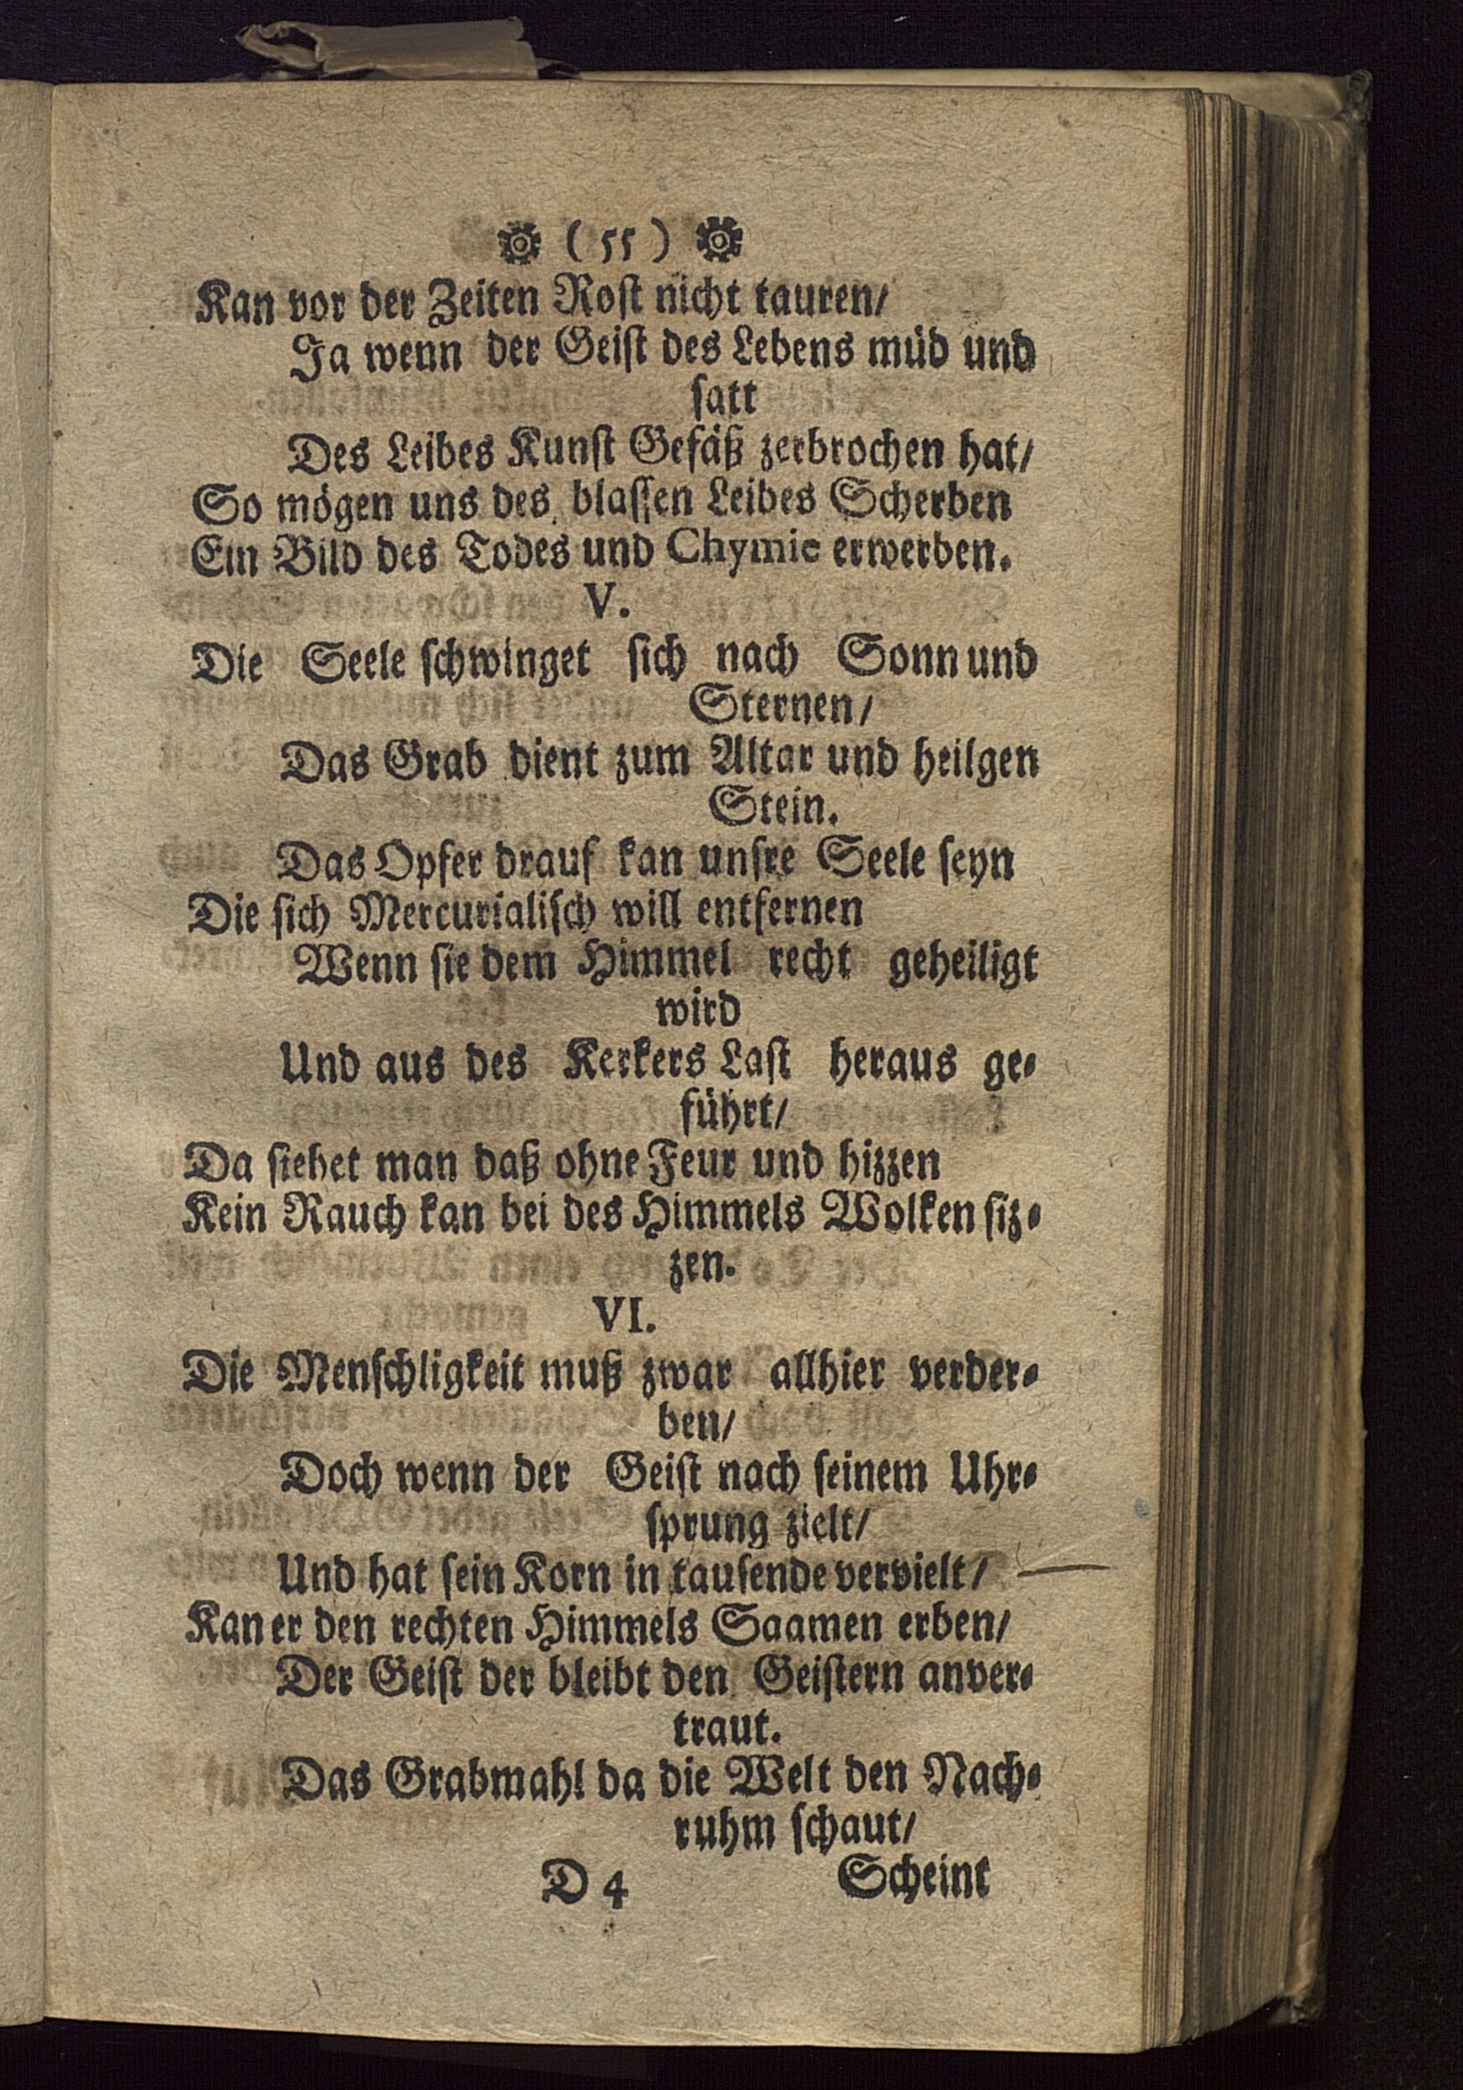 ( 55 )
Kan vor der Zeiten Rost nicht tauren/
Ja wenn der Geist des Lebens müd und
satt
Des Leibes Kunst Gefäß zerbrochen hat/
So mögen uns des blassen Leibes Scherben
Ein Bild des Todes und Chymie erwerben.
V.
Die Seele schwinget sich nach Sonn und
Sternen/
Das Grab dient zum Altar und heilgen
Stein.
Das Opfer drauf kan unsre Seele seyn
Die sich Mercurialisch will entfernen
Wenn sie dem Himmel recht geheiligt
wird
Und aus des Kerkers Last heraus ge-
führt/
Da siehet man daß ohne Feur und hizzen
Kein Rauch kan bei des Himmels Wolken siz-
zen.
VI.
Die Menschligkeit muß zwar allhier verder-
ben/
Doch wenn der Geist nach seinem Uhr-
sprung zielt/
Und hat sein Korn in tausende vervielt/
Kan er den rechten Himmels Saamen erben/
Der Geist der bleibt den Geistern anver-
traut.
Das Grabmahl da die Welt den Nach-
ruhm schaut/
D 4 Scheint